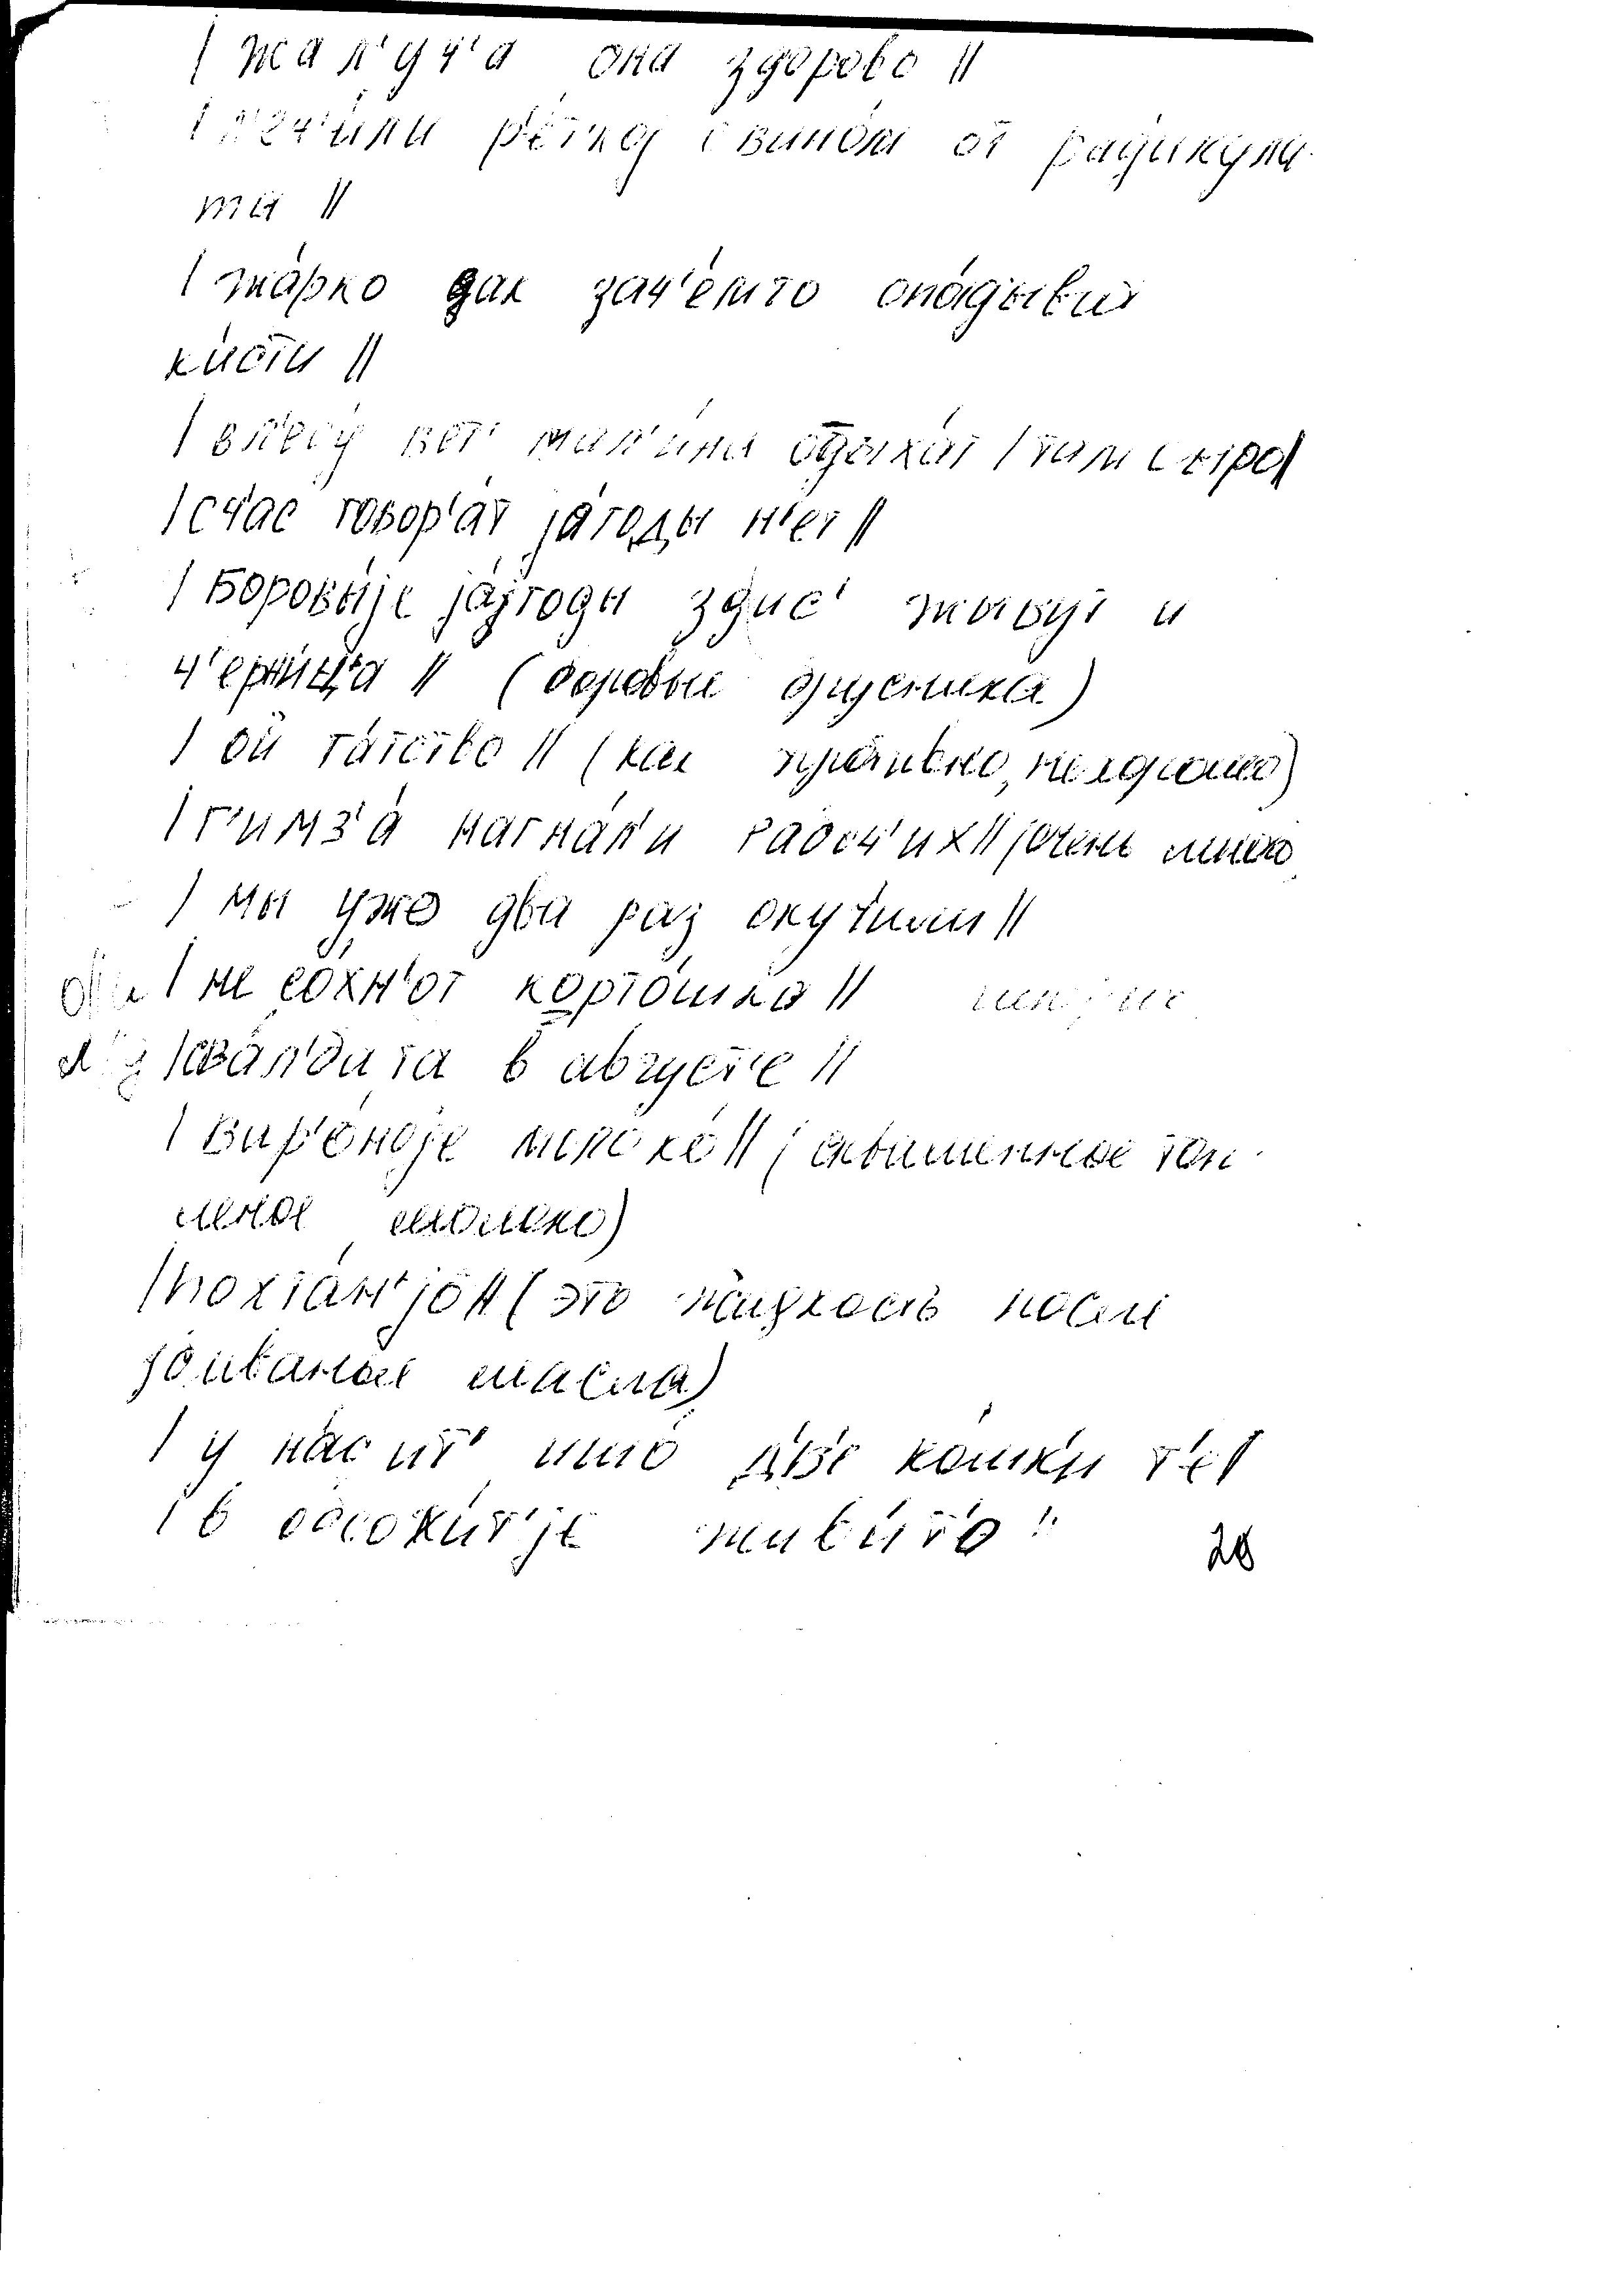 | жал'уч'а она здорово ||
| л'еч'и́ли р'е́т'кој с вино́м от радикули
та ||
| жа́рко дак зач'е́мто опа́дывут
ки́сти ||
| в л'есу́ вет' мал'и́на отдыха́т | там сыро ||
| с'ч'ас говор'а́т ја́годы н'ет ||
| Боровы́је ја́годы здис' жывут и
ч'ерни́ц'а || (боровые брусника)
| ой га́тство || (как противно, нехорошо)
| г'имз'а́ нагна́л'и рабоч'их || (очень много
| мы ужо два раз окучили ||
| не со́хн'от карто́шка ||
| сва́л'ба та в август'е ||
| вар'о́ноје молоко́ || (сквашенное топ
леное молоко)
| похта́н'јо || (это жидкость после
сбивания масла)
| у на́с ит' ишо́ д'в'е ко́шки т'е ||
| в обсожи́т'је жыви́т'о ||
28